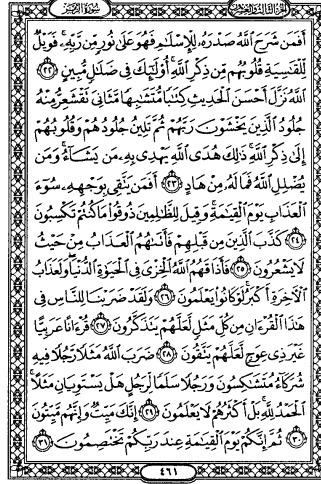 الجزء الثالث والعشرون سورة الزمر
أَفَمَن شَرَحَ اللَّهُ صَدْرَهُ لِلْإِسْلَامِ فَهُوَ عَلَىٰ نُورٍ مِّن رَّبِّهِ ۚ فَوَيْلٌ
لِّلْقَاسِيَةِ قُلُوبُهُم مِّن ذِكْرِ اللَّهِ ۚ أُولَٰئِكَ فِي ضَلَالٍ مُّبِينٍ ٢٢
اللَّهُ نَزَّلَ أَحْسَنَ الْحَدِيثِ كِتَابًا مُّتَشَابِهًا مَّثَانِيَ تَقْشَعِرُّ مِنْهُ
جُلُودُ الَّذِينَ يَخْشَوْنَ رَبَّهُمْ ثُمَّ تَلِينُ جُلُودُهُمْ وَقُلُوبُهُمْ
إِلَىٰ ذِكْرِ اللَّهِ ۚ ذَٰلِكَ هُدَى اللَّهِ يَهْدِي بِهِ مَن يَشَاءُ ۚ وَمَن
يُضْلِلِ اللَّهُ فَمَا لَهُ مِنْ هَادٍ ٢٣ أَفَمَن يَتَّقِي بِوَجْهِهِ سُوءَ
الْعَذَابِ يَوْمَ الْقِيَامَةِ ۚ وَقِيلَ لِلظَّالِمِينَ ذُوقُوا مَا كُنتُمْ تَكْسِبُونَ
٢٤ كَذَّبَ الَّذِينَ مِن قَبْلِهِمْ فَأَتَاهُمُ الْعَذَابُ مِنْ حَيْثُ
لَا يَشْعُرُونَ ٢٥ فَأَذَاقَهُمُ اللَّهُ الْخِزْيَ فِي الْحَيَاةِ الدُّنْيَا ۖ وَلَعَذَابُ
الْآخِرَةِ أَكْبَرُ ۚ لَوْ كَانُوا يَعْلَمُونَ ٢٦ وَلَقَدْ ضَرَبْنَا لِلنَّاسِ فِي
هَٰذَا الْقُرْآنِ مِن كُلِّ مَثَلٍ لَّعَلَّهُمْ يَتَذَكَّرُونَ ٢٧ قُرْآنًا عَرَبِيًّا
غَيْرَ ذِي عِوَجٍ لَّعَلَّهُمْ يَتَّقُونَ ٢٨ ضَرَبَ اللَّهُ مَثَلًا رَّجُلًا فِيهِ
شُرَكَاءُ مُتَشَاكِسُونَ وَرَجُلًا سَلَمًا لِّرَجُلٍ هَلْ يَسْتَوِيَانِ مَثَلًا ۚ
الْحَمْدُ لِلَّهِ ۚ بَلْ أَكْثَرُهُمْ لَا يَعْلَمُونَ ٢٩ إِنَّكَ مَيِّتٌ وَإِنَّهُم مَّيِّتُونَ
٣٠ ثُمَّ إِنَّكُمْ يَوْمَ الْقِيَامَةِ عِندَ رَبِّكُمْ تَخْتَصِمُونَ ٣١
٤٦١